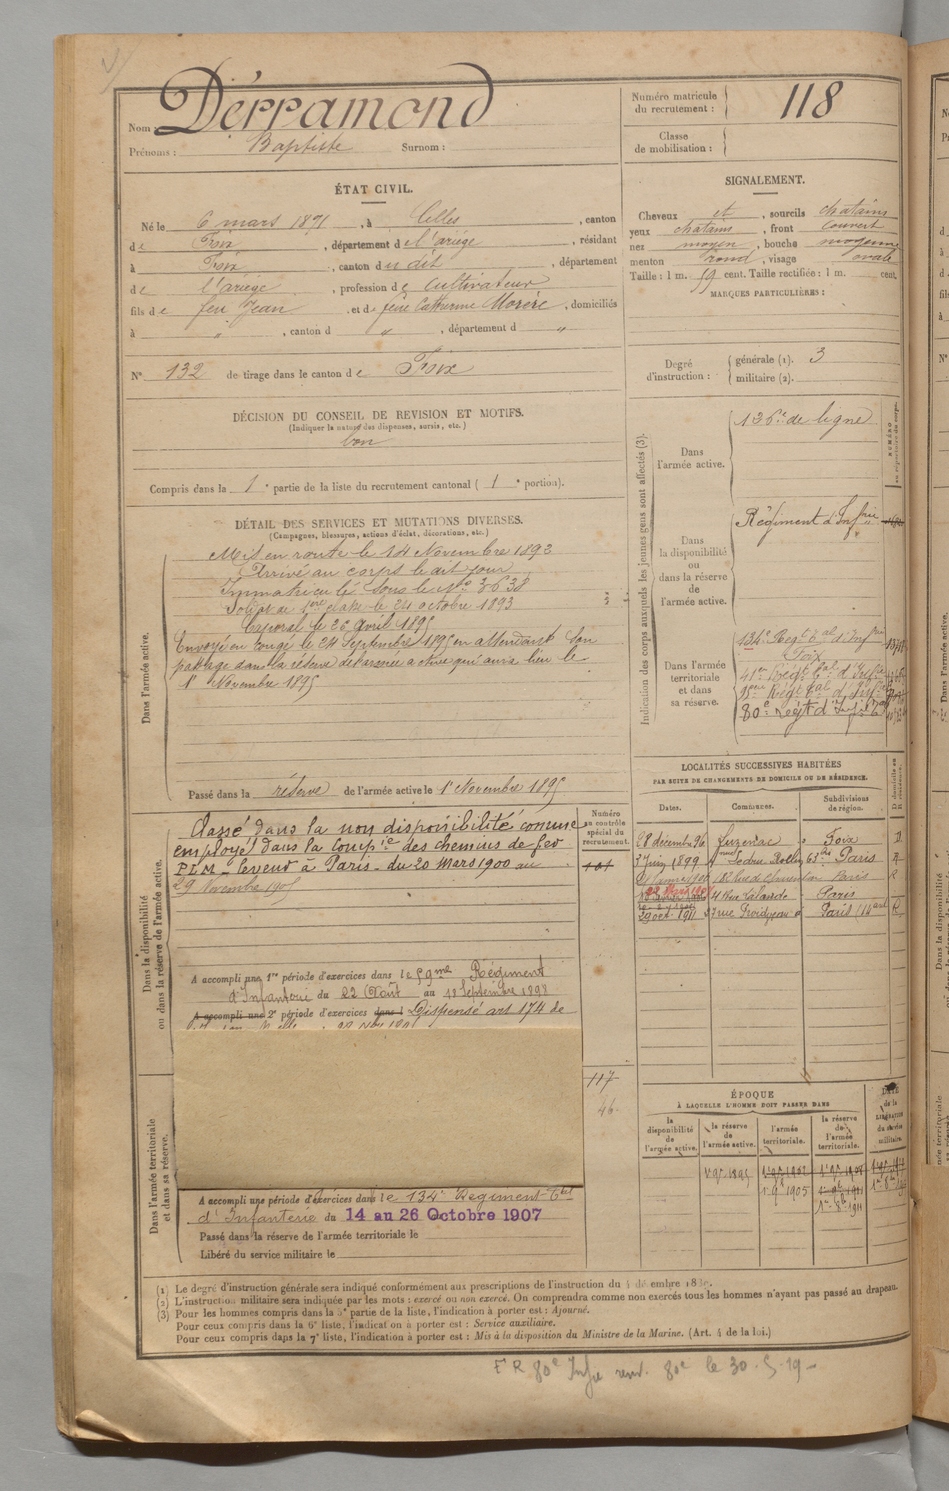 Nom Dérramond
Prénoms : Baptiste Surnom :
Numéro matricule du recrutement : 118
Classe de mobilisation :
ÉTAT CIVIL.
Né le 6 mars 1871, à Celles, canton
de Foix, département de l'ariège, résidant
à Foix, canton du dit, département
de l'ariège, profession de cultivateur
fils de feu Jean et de feue Catherine Morère, domiciliés
à " , canton d " , département d "
N° 132 de tirage dans le canton de Foix
SIGNALEMENT.
Cheveux et, sourcils chatains
yeux chatains, front couvert
nez moyen, bouche moyenne
menton rond, visage ovale
Taille : 1 m. 59 cent. Taille rectifiée : 1 m. cent.
MARQUES PARTICULIÈRES :
Degré d'instruction : générale (1). 3
militaire (2).
DÉCISION DU CONSEIL DE REVISION ET MOTIFS.
(Indiquer la nature des dispenses, sursis, etc.)
bon
Compris dans la 1e partie de la liste du recrutement cantonal (1e portion).
DÉTAIL DES SERVICES ET MUTATIONS DIVERSES.
(Campagnes, blessures, actions d'éclat, décorations, etc.)
Dans l'armée active.
Mis en route le 14 Novembre 1892
Arrivé au corps le dit jour
Immatriculé sous le No 3638
Soldat de 1ère classe le 24 octobre 1893
Caporal le 26 Avril 1895
Envoyé en congé le 24 Septembre 1895 en attendant son
passage dans la réserve de l'armée active qui aura lieu le
1er Novembre 1895
Passé dans la réserve de l'armée active le 1er Novembre 1895
Indication des corps auxquels les jeunes gens sont affectés (3).
Dans l'armée active.
136e de ligne
Dans la disponibilité ou dans la réserve de l'armée active.
Régiment d'Infrie
Dans l'armée territoriale et dans sa réserve.
134e Regt Tal d'Infrie
Foix
80e Régt d'Infie
Dans la disponibilité ou dans la réserve de l'armée active.
Numéro au contrôle spécial du recrutement.
Classé dans la non disponibilité comme
employé dans la Compie des chemins de fer
PLM _ leveur à Paris _ du 20 Mars 1900 au
29 Novembre 1905
A accompli une 1re période d'exercices dans le 59me Régiment
d'Infanterie du 22 Août au 18 Septembre 1898
A accompli une 2e période d'exercices dans l Dispensé art 174 de
LOCALITÉS SUCCESSIVES HABITÉES
PAR SUITE DE CHANGEMENTS DE DOMICILE OU DE RÉSIDENCE.
Dates. Communes. Subdivisions de région. D domicile ou R résidence.
28 décembre 96 Luzenac Foix D
3 Juin 1899 Ledru Rollin 63 Paris R
Paris R
Paris
29 oct. 1911 Paris R
117
46
ÉPOQUE
À LAQUELLE L'HOMME DOIT PASSER DANS
la disponibilité de l'armée active.
la réserve de l'armée active.
l'armée territoriale.
la réserve de l'armée territoriale.
DATE de la LIBÉRATION du service militaire.
Dans l'armée territoriale et dans sa réserve.
A accompli une période d'exercices dans le 134e Regiment Tal
d'Infanterie du 14 au 26 Octobre 1907
Passé dans la réserve de l'armée territoriale le
Libéré du service militaire le
(1) Le degré d'instruction générale sera indiqué conformément aux prescriptions de l'instruction du
(2) L'instruction militaire sera indiquée par les mots : exercé ou non exercé. On comprendra comme non exercés tous les hommes n'ayant pas passé au drapeau.
(3) Pour les hommes compris dans la 5e partie de la liste, l'indication à porter est : Ajourné.
Pour ceux compris dans la 6e liste, l'indication à porter est : Service auxiliaire.
Pour ceux compris dans la 7e liste, l'indication à porter est : Mis à la disposition du Ministre de la Marine. (Art. 4 de la loi.)
80e le 30-5-19-